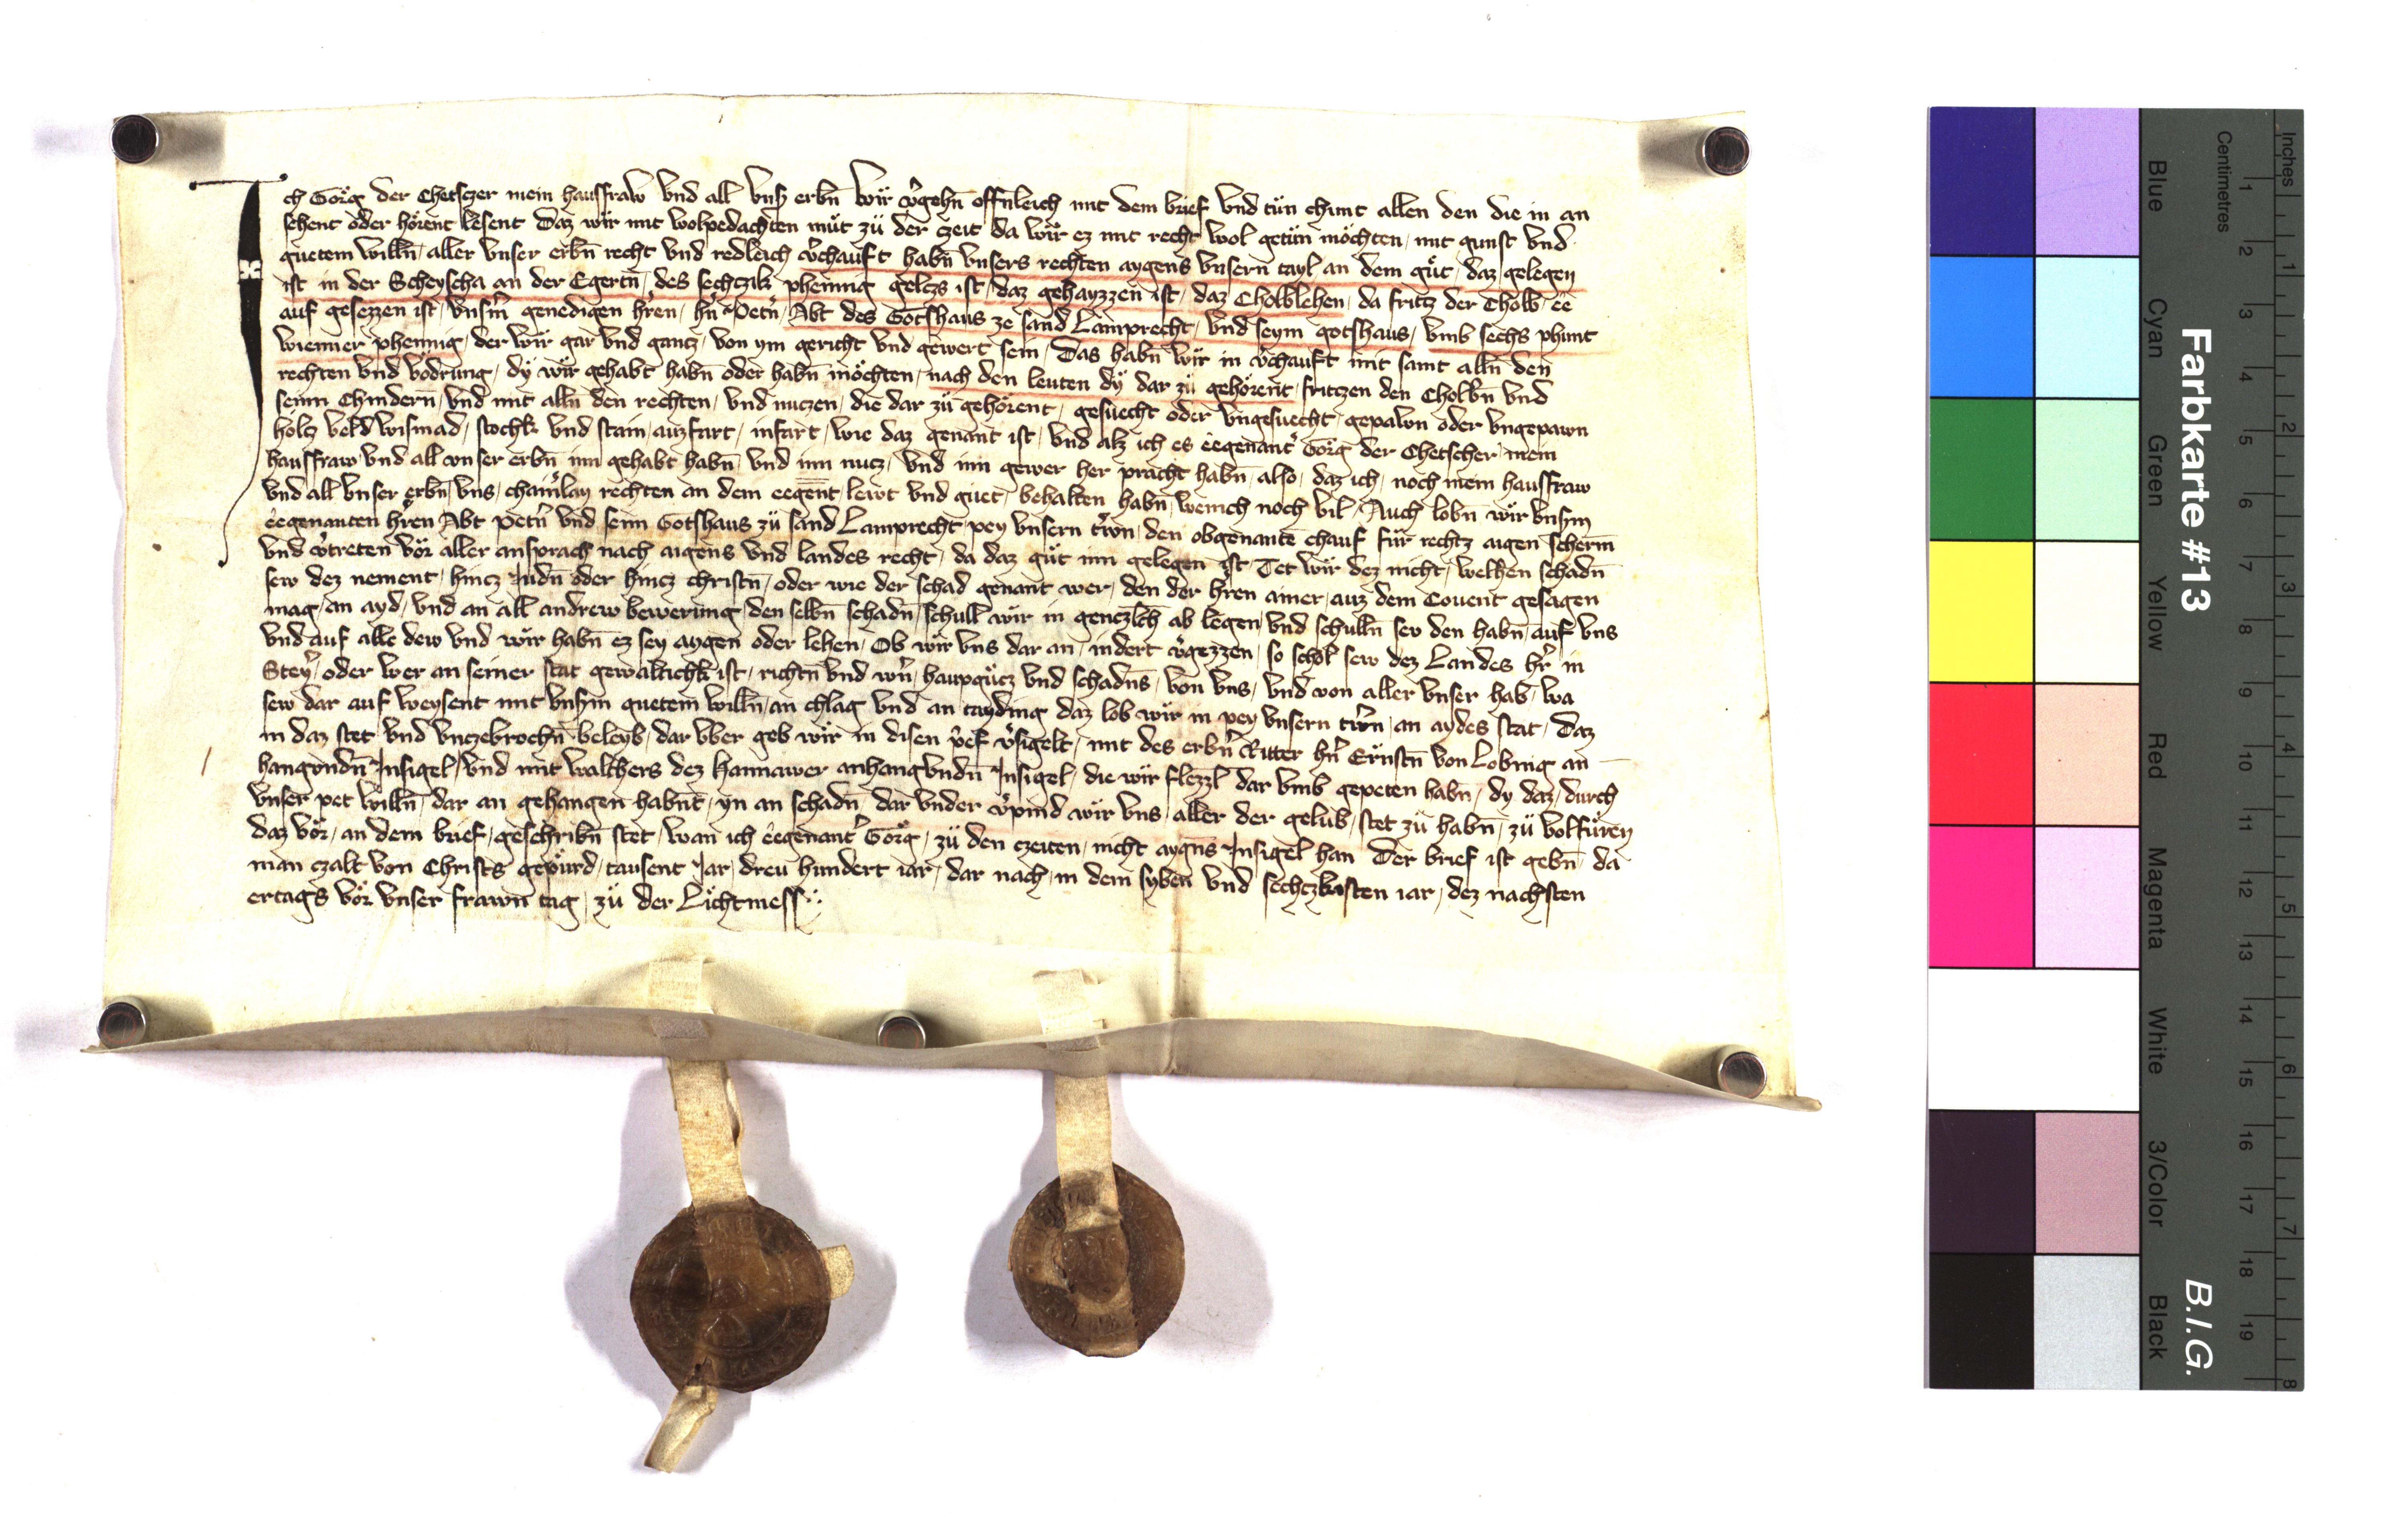 Ich Görg der Chetszer mein hausfraw vnd all vnß erbn̄ wir v̾gehn̄ offn̄leich mit dem brief vnd tün chunt allen den die in an
sehent oder hörent lesent Daz wir mit wolpedachten müt zü der czeit da wir ez mit recht wol getün möchten mit gunst vnd
guetem willn̄ aller vnser erbn̄ recht vnd redleich v̾chauft habn̄ vnsers rechten aygens vnsern tayl an dem güt daz gelegen
ist in der Scheyscha an der Egertn̄ des sechczik phennig gelczs ist daz gehayzzen ist daz Cholblehen da fritz der Cholb ee
auf gesezzen ist vnsm̄ genedigen hr̄en hn̄ Petn̄ Abt des Gotshaus ze sand Lamprecht vnd seym gotshaus vmb sechs phunt
wienner phennig der wir gar vnd gancz von ym gericht vnd gewert sein Das habn̄ wir in v̾chauft mit samt alln̄ den
rechten vnd vödrung dÿ wir gehabt habn̄ oder habn̄ möchten nach den leuten dÿ dar zü gehörent fritzen den Cholbn̄ vnd
seinn Chindern̄ vnd mit alln̄ den rechten vnd nuczen die dar zü gehörent gesuecht oder vngesuecht gepawn oder vngepawn
holcz veld wismad stochk vnd stain auzfart infart wie daz genant ist vnd alz ich es eegenant̾ Görg der Chetscher mein
hausfraw vnd all vnser erbn̄ inn gehabt habn̄ vnd inn nucz vnd inn gewer her pracht habn̄ also daz ich noch mein hausfraw
vnd all vnser erbn̄ vns chainlay rechten an dem eegen̄t lewt vnd guet behalten habn̄ wenich noch vil Auch lobn̄ wir vnsm̄
eegenanten hr̄en Abt petn̄ vnd seinn Gotshaus zü sand Lamprecht pey vnsern tr̄wn den obgenantē chauf für rechtz aigen scherm̄
vnd v̾treten vör aller ansprach nach aigens vnd landes recht da daz güt inn gelegen ist Tet wir dez nicht welhen schadn̄
sew dez nement hincz Judn̄ oder hincz christn̄ oder wie der schad genant wer den der hr̄en ainer auz dem Couent gesagen
mag an ayd vnd an all andrew bewerung den selbn̄ schadn̄ schull wir in genczlch̄ ab legen vnd schulln̄ sew den habn̄ auf vns
vnd auf alle dew vnd wir habn̄ ez sey aygen oder lehen Ob wir vns dar an indert v̾gezzen so schol sew dez Landes hr̄ in
Stey̾ oder wer an seiner stat gewaltichk ist richtn̄ vnd wn̄ haupgücz vnd schadn̄s von vns vnd von aller vnser hab wa
sew dar auf weysent mit vnsm̄ guetem willn̄ an chlag vnd an tayding daz lob wir in pey vnsern tr̄wn an aydes stat Daz
in daz stet vnd vnczebrochn̄ beleyb dar vber geb wir in disen p̾ef v̾sigelt mit des erbn̄ Ritter hn̄ Ernstn̄ von Lobnig an
hangundn̄ Insigel vnd mit walthers dez Hannawer anhangundn̄ Insigel die wir flezzl dar vmb gepeten habn̄ dy daz durch
vnser pet willn̄ dar an gehangen habnt yn an schadn̄ dar vnder v̾pind wir vns aller der gelub stet zü habn̄ zü volfüren
daz vör an dem brief geschribn̄ stet wan ich eegenant̾ Görg zü den czeiten nicht aygn̄s Insigel han Der brief ist gebn̄ da
man czalt von Christs gepürd tausent Jar dreu hundert iar dar nach in dem syben vnd sechczkisten iar dez nachsten
ertags vör vnser frawn tag zü der Lichtmess
Farbkarte #13
B.I.G.
Inches
Centimetres
1 2 3 4 5 6 7 8 9 10 11 12 13 14 15 16 17 18 19
1 2 3 4 5 6 7 8
Blue
Cyan
Green
Yellow
Red
Magenta
White
3/Color
Black